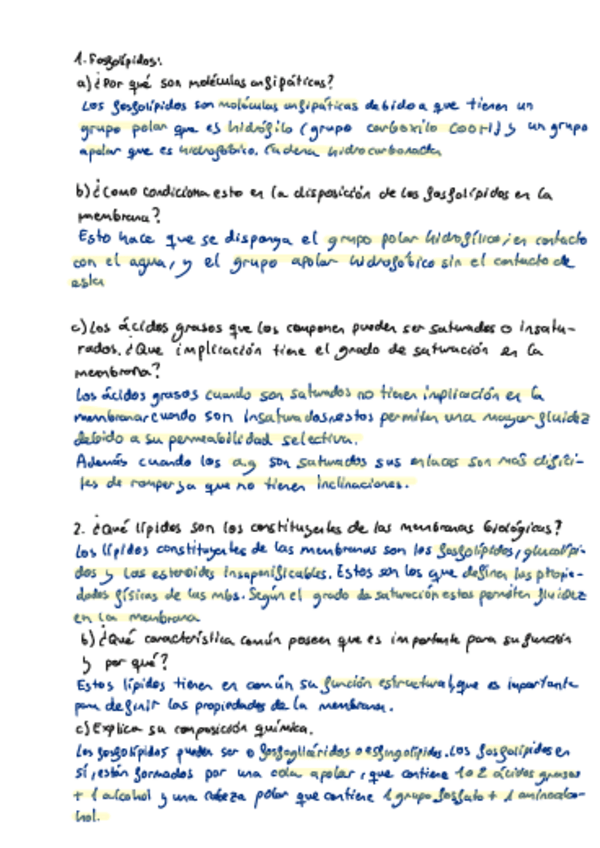 1. Fosfolípidos:
a) ¿Por qué son moléculas anfipáticas?
Los fosfolípidos son moléculas anfipáticas debido a que tienen un
grupo polar que es hidrófilo (grupo carboxilo COOH) y un grupo
apolar que es hidrofóbico. Cadena hidrocarbonada
b) ¿Como condiciona esto en la disposición de los fosfolípidos en la
membrana?
Esto hace que se disponga el grupo polar hidrofílico, en contacto
con el agua, y el grupo apolar hidrofóbico sin el contacto de
esta
c) Los ácidos grasos que los componen pueden ser saturados o insatu-
rados. ¿Que implicación tiene el grado de saturación en la
membrana?
Los ácidos grasos cuando son saturados no tienen implicación en la
membrana, cuando son insaturados, estos permiten una mayor fluidez
debido a su permeabilidad selectiva.
Además cuando los a.g son saturados sus enlaces son más difíci-
les de romper ya que no tienen inclinaciones.
2. ¿Qué lípidos son los constituyentes de las membranas biológicas?
Los lípidos constituyentes de las membranas son los fosfolípidos, glucolípi-
dos y los esteroides insaponificables. Estos son los que definen las propie-
dades físicas de las mbs. Según el grado de saturación estas permiten fluidez
en la membrana
b) ¿Qué característica común poseen que es importante para su función
y por qué?
Estos lípidos tienen en común su función estructural, que es importante
para definir las propiedades de la membrana.
c) Explica su composición química.
Los fosfolípidos pueden ser o fosfoglicéridos o esfingolípidos. Los fosfolípidos en
sí, están formados por una cola apolar, que contiene 1 o 2 ácidos grasos
+ 1 alcohol y una cabeza polar que contiene 1 grupo fosfato + 1 aminoalco-
hol.